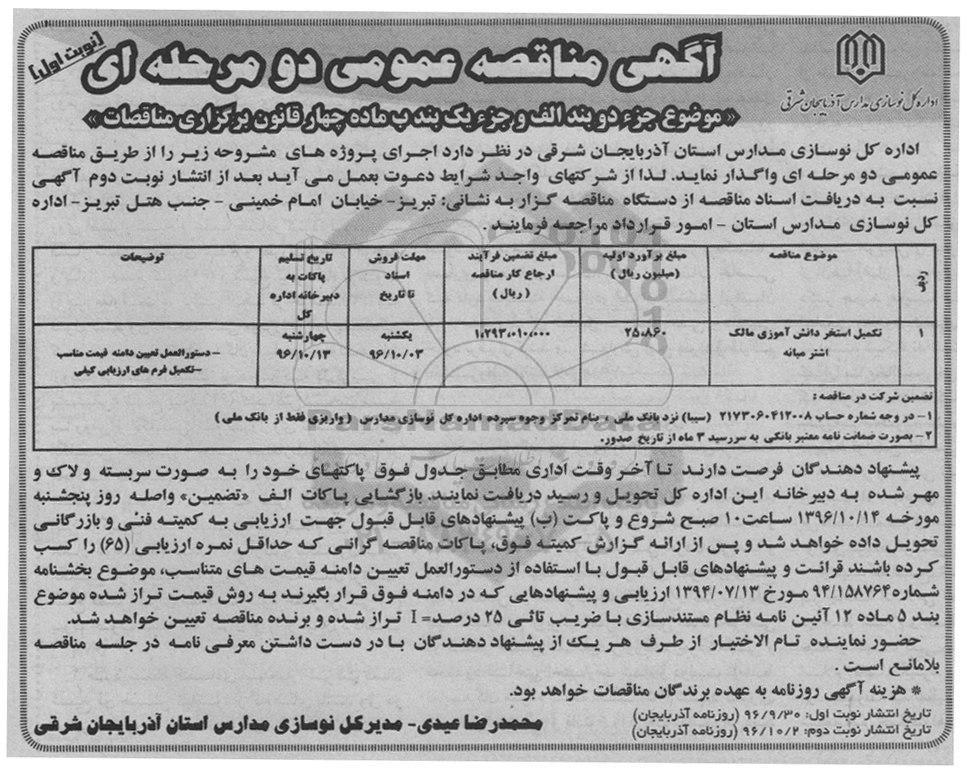 [نوبت اول]
آگهی مناقصه عمومی دو مرحله ای
اداره کل نوسازی مدارس آذربایجان شرقی
«موضوع جزء دو بند الف و جزء یک بند ب ماده چهار قانون برگزاری مناقصات»
اداره کل نوسازی مدارس استان آذربایجان شرقی در نظر دارد اجرای پروژه های مشروحه زیر را از طریق مناقصه
عمومی دو مرحله ای واگذار نماید. لذا از شرکتهای واجد شرایط دعوت بعمل می آید بعد از انتشار نوبت دوم آگهی
نسبت به دریافت اسناد مناقصه از دستگاه مناقصه گزار به نشانی: تبریز- خیابان امام خمینی - جنب هتل تبریز- اداره
کل نوسازی مدارس استان - امور قرارداد مراجعه فرمایند.
ردیف
موضوع مناقصه
مبلغ برآورد اولیه
(میلیون ریال)
مبلغ تضمین فرآیند
ارجاع کار مناقصه
(ریال)
مهلت فروش
اسناد
تا تاریخ
تاریخ تسلیم
پاکات به
دبیرخانه اداره
کل
توضیحات
۱
تکمیل استخر دانش آموزی مالک
اشتر میانه
۲۵،۸۶۰
۱،۲۹۳،۰۱۰،۰۰۰
یکشنبه
۹۶/۱۰/۰۳
چهارشنبه
۹۶/۱۰/۱۳
- دستورالعمل تعیین دامنه قیمت مناسب
-تکمیل فرم های ارزیابی کیفی
تضمین شرکت در مناقصه :
۱- در وجه شماره حساب ۲۱۷۳۰۶۰۴۱۲۰۰۸ (سیبا) نزد بانک ملی ، بنام تمرکز وجوه سپرده اداره کل نوسازی مدارس ( واریزی فقط از بانک ملی )
۲- بصورت ضمانت نامه معتبر بانکی به سررسید ۳ ماه از تاریخ صدور.
پیشنهاد دهندگان فرصت دارند تا آخر وقت اداری مطابق جدول فوق پاکتهای خود را به صورت سربسته و لاک و
مهر شده به دبیرخانه این اداره کل تحویل و رسید دریافت نمایند. بازگشایی پاکات الف «تضمین» واصله روز پنجشنبه
مورخه ۱۳۹۶/۱۰/۱۴ ساعت۱۰ صبح شروع و پاکت (ب) پیشنهادهای قابل قبول جهت ارزیابی به کمیته فنی و بازرگانی
تحویل داده خواهد شد و پس از ارائه گزارش کمیته فوق، پاکات مناقصه گرانی که حداقل نمره ارزیابی (۶۵) را کسب
کرده باشند قرائت و پیشنهادهای قابل قبول با استفاده از دستورالعمل تعیین دامنه قیمت های متناسب، موضوع بخشنامه
شماره۹۴/۱۵۸۷۶۴ مورخ ۱۳۹۴/۰۷/۱۳ ارزیابی و پیشنهادهایی که در دامنه فوق قرار بگیرند به روش قیمت تراز شده موضوع
بند ۵ ماده ۱۲ آئین نامه نظام مستندسازی با ضریب تاثی ۲۵ درصد= I تراز شده و برنده مناقصه تعیین خواهد شد.
حضور نماینده تام الاختیار از طرف هر یک از پیشنهاد دهندگان با در دست داشتن معرفی نامه در جلسه مناقصه
بلامانع است .
* هزینه آگهی روزنامه به عهده برندگان مناقصات خواهد بود.
تاریخ انتشار نوبت اول: ۹۶/۹/۳۰ (روزنامه آذربایجان)
تاریخ انتشار نوبت دوم: ۹۶/۱۰/۲ (روزنامه آذربایجان)
محمدرضا عبدی- مدیرکل نوسازی مدارس استان آذربایجان شرقی
ParsNamadData